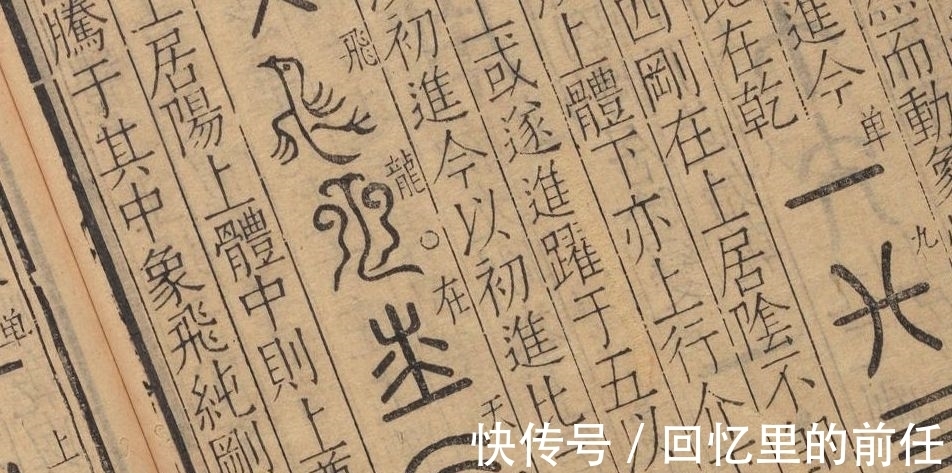 而動象
進今
单
一
九
在乾
四剛在上居陰不
上體下亦上行
上或遂進躍于五以
初進今以初進比
飛
龍
在
天
上居陽上體中則上
騰于其中象飛純剛
单
上
快传号 / 回忆里的前任